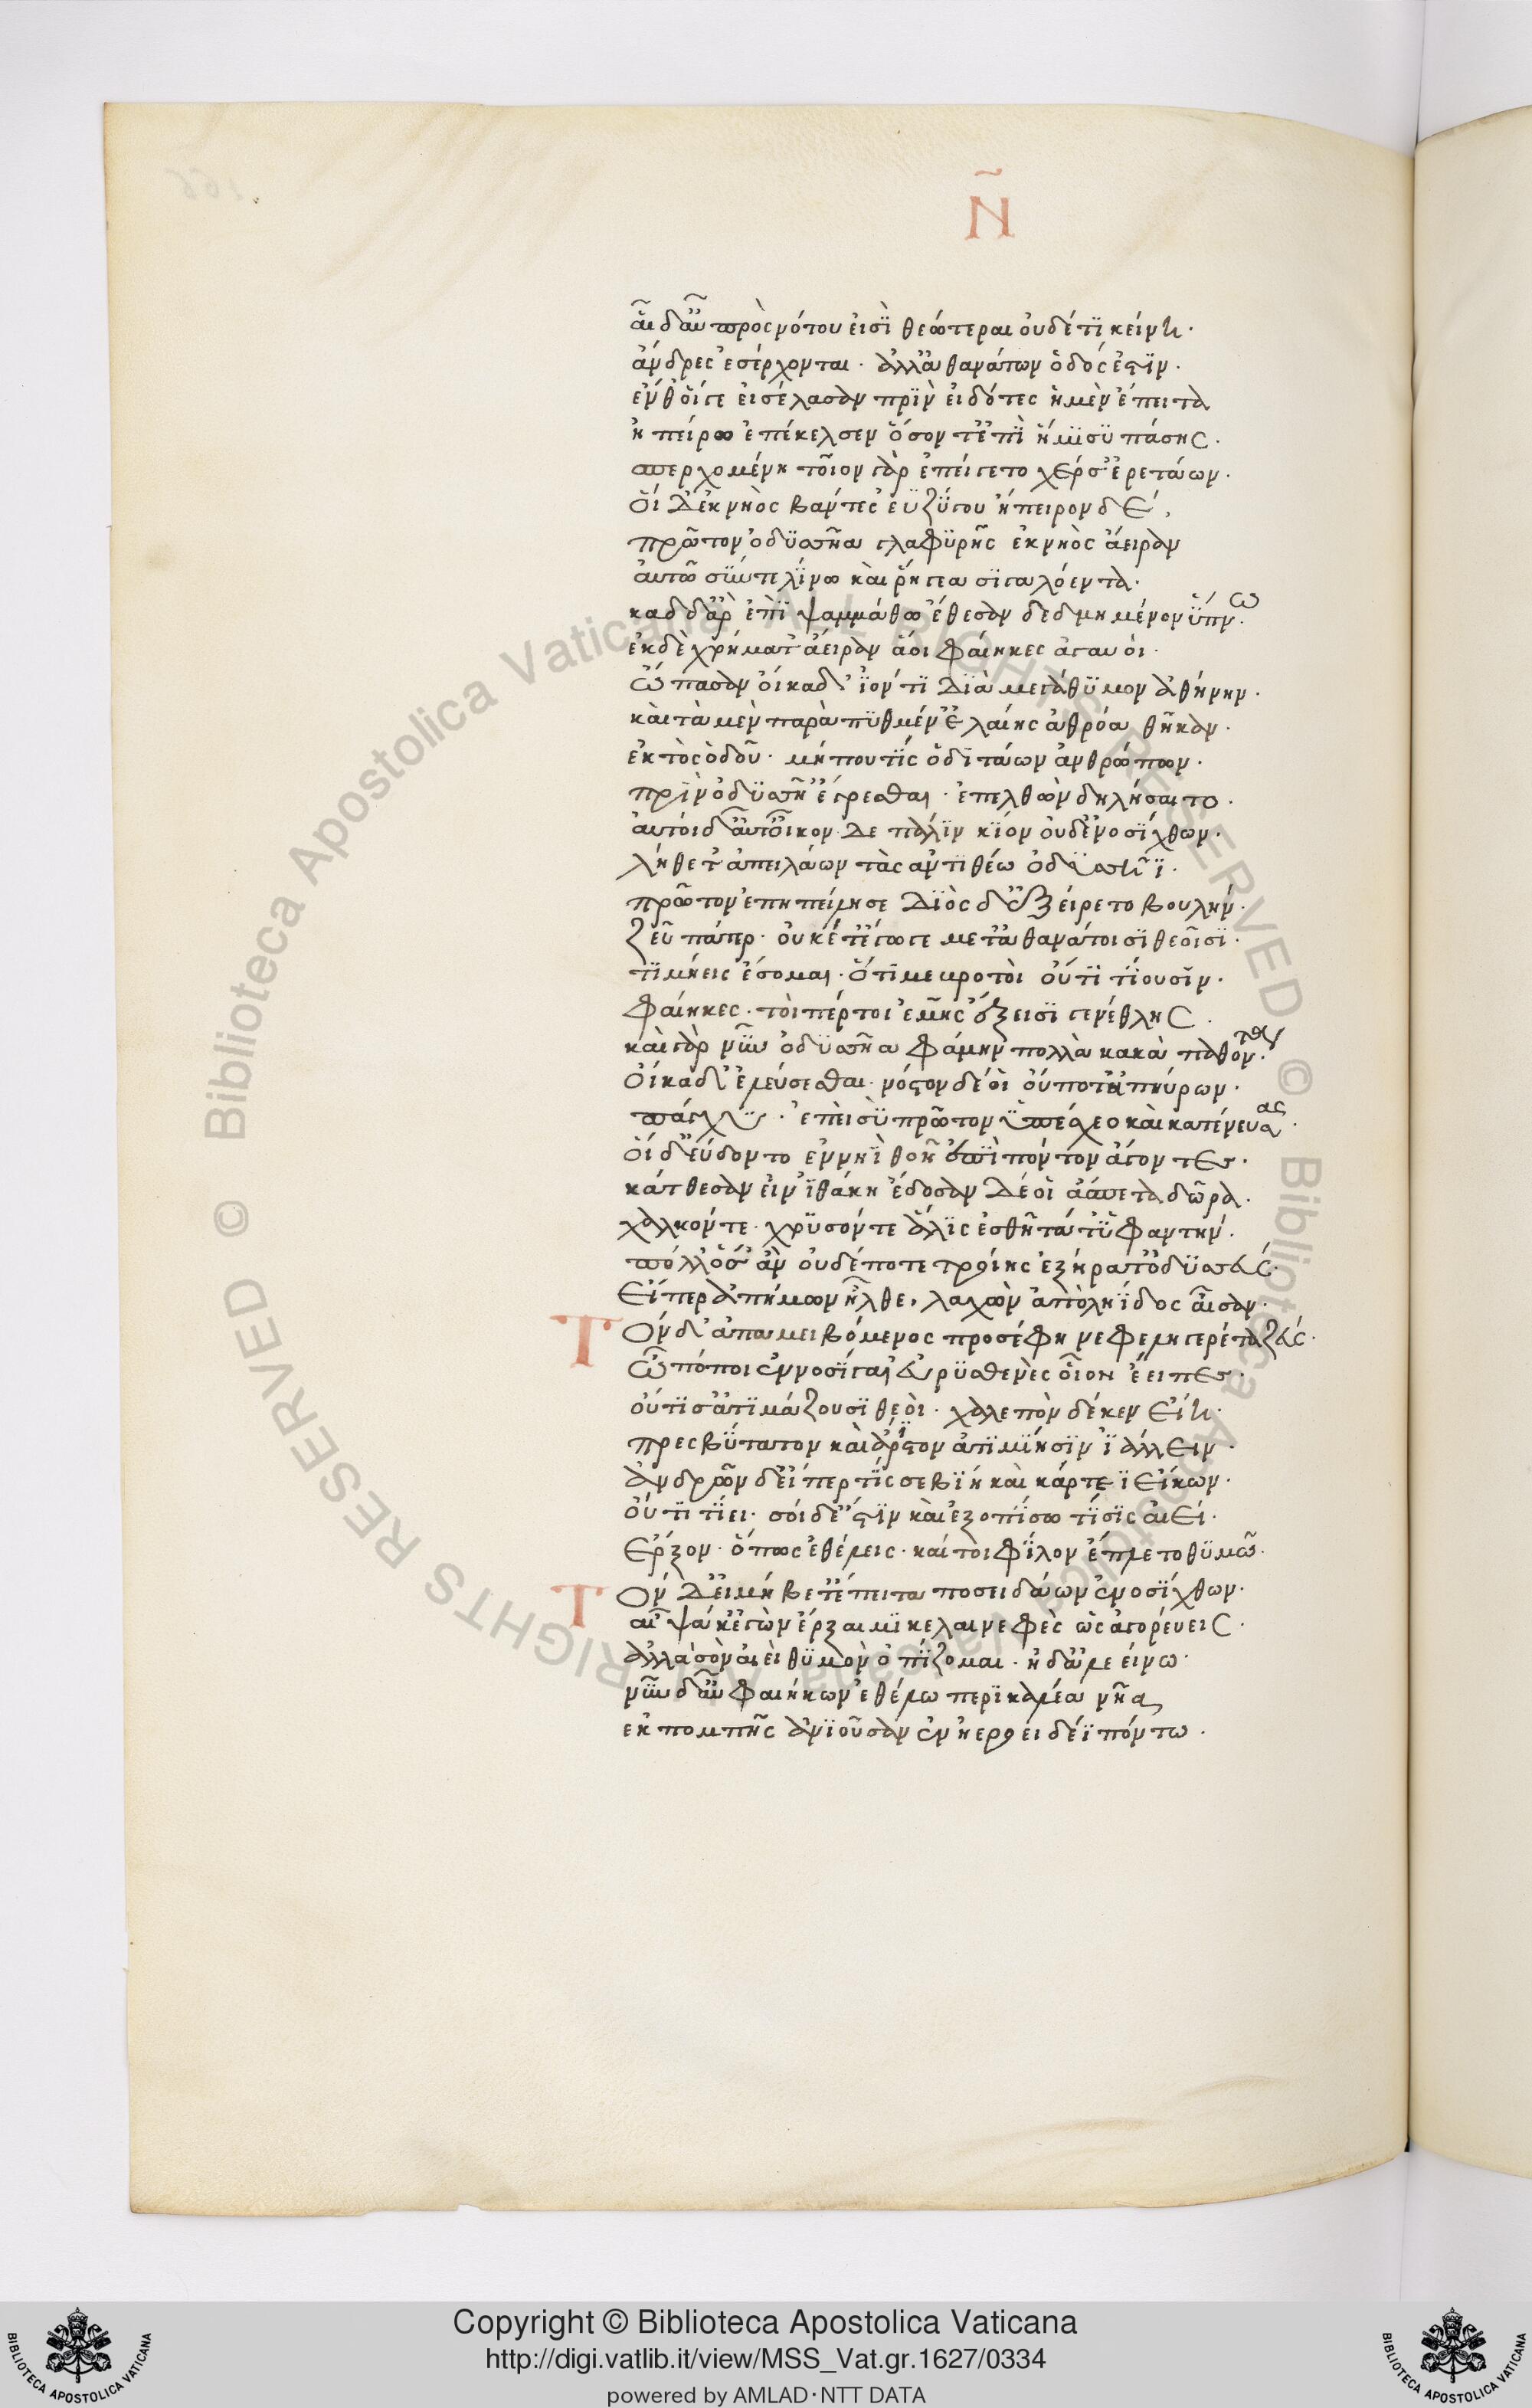 Ν̃
αἱ δ' αὖ πρὸς νότου εἰσὶ θεώτεραι οὐδέ τι κείνη·
ἄνδρες ἐσέρχονται· ἀλλ' ἀθανάτων ὁδός ἐστιν·
ἔνθ' οἵ γε εἰσέλασαν πρὶν εἰδότες ἡ μὲν ἔπειτα
ἠπείρω ἐπέκελσεν ὅσον τ' ἐπὶ ἥμισυ πάσης·
σπερχομένη τοῖον γὰρ ἐπείγετο χέρσ' ἐρετάων·
οἱ δ' ἐκ νηὸς βάντες ἐϋζύγου ἤπειρον δέ,
πρῶτον ὀδυσσῆα γλαφυρῆς ἐκ νηὸς ἄειραν
αὐτῶ σύν τε λίνω καὶ ῥήγεα σιγαλόεντα·
καδδ' ἄρ' ἐπὶ ψαμμάθω ἔθεσαν δεδμημένον ὕπνω·
ἐκ δὲ χρήματ' ἄειραν ἅ οἱ φαίηκες ἀγαυοὶ·
ὤπασαν οἴκαδ' ἰόντι διὰ μεγάθυμον ἀθήνην·
καὶ τὰ μὲν παρὰ πυθμέν' ἐλαίης ἀθρόα θῆκαν·
ἐκτὸς ὁδοῦ· μήπου τίς ὁδιτάων ἀνθρώπων·
πρὶν ὀδυσσῆ' ἔγρεσθαι· ἐπελθὼν δηλήσαιτο·
αὐτοὶ δ' αὖτ' οἶκον δε πάλιν κίον οὐδ' ἐνοσίχθων·
λήθετ' ἀπειλάων τὰς ἀντιθέω ὀδυσσῆϊ·
πρῶτον ἐπηπείλησε διὸς δ' ἐξείρετο βουλήν·
ζεῦ πάτερ· οὐκέτ' ἔγωγε μετ' ἀθανάτοισι θεοῖσι·
τιμήεις ἔσομαι· ὅτι με βροτοὶ οὔτι τίουσιν·
φαίηκες· τοὶ πέρ τοι ἐμῆς ἔξεισι γενέθλης·
καὶ γὰρ νῦν ὀδυσσῆα φάμην πολλὰ κακὰ παθόντα·
οἴκαδ' ἐλεύσεσθαι· νόστον δέ οἱ οὔποτ' ἀπηύρων·
πάγχυ· ἐπεὶ σὺ πρῶτον ὑπέσχεο καὶ κατένευσας·
οἱ δ' εὕδοντ' ἐν νηῒ θοῆ ἐπὶ πόντον ἄγοντες·
κάτθεσαν εἰν ἰθάκη ἔδοσαν δέ οἱ ἄσπετα δῶρα·
χαλκόν τε· χρυσόν τε ἅλις ἐσθῆτά τ' ὑφαντήν·
πόλλ' ὅσ' ἂν οὐδέποτε τροίης ἐξήρατ' ὀδυσσεύς·
εἴπερ ἀπήμων ἦλθε, λαχὼν ἀπὸ ληΐδος αἶσαν·
Τὸν δ' ἀπαμειβόμενος προσέφη νεφεληγερέτα ζεύς·
ὢ πόποι ἐννοσίγαι' εὐρυσθενὲς οἷον ἔειπες·
οὔτι σ' ἀτιμάζουσι θεοὶ· χαλεπὸν δέ κεν εἴη·
πρεσβύτατον καὶ ἄριστον ἀτιμίησιν ἰάλλειν·
ἀνδρῶν δ' εἴπερ τίς σε βίη καὶ κάρτεϊ εἴκων·
οὔτι τίει· σοὶ δ' ἔστιν καὶ ἐξοπίσω τίσις αἰεί·
ἔρξον· ὅπως ἐθέλεις· καί τοι φίλον ἔπλετο θυμῶ·
Τὸν δ' ἠμείβετ' ἔπειτα ποσειδάων ἐνοσίχθων·
αἶψά κ' ἐγὼν ἔρξαιμι κελαινεφὲς ὡς ἀγορεύεις·
ἀλλὰ σὸν αἰεὶ θυμὸν ὀπίζομαι· ἠδ' ἀλεείνω·
νῦν δ' αὖ φαιήκων ἐθέλω περικαλέα νῆα,
ἐκ πομπῆς ἀνιοῦσαν ἐν ἠεροειδέϊ πόντω·
Copyright © Biblioteca Apostolica Vaticana
http://digi.vatlib.it/view/MSS_Vat.gr.1627/0334
powered by AMLAD·NTT DATA
BIBLIOTECA APOSTOLICA VATICANA
BIBLIOTECA APOSTOLICA VATICANA
© Biblioteca Apostolica Vaticana ALL RIGHTS RESERVED © Biblioteca Apostolica Vaticana ALL RIGHTS RESERVED